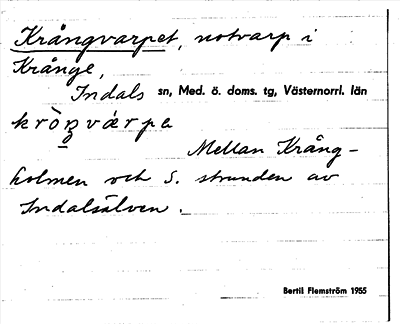 Krångvarpet, notvarp i
Krånge,
Indals sn, Med. ö. doms. tg, Västernorrl. län
kròŋvárpe
Mellan Krång-
holmen och S. stranden av
Indalsälven.
Bertil Flemström 1955